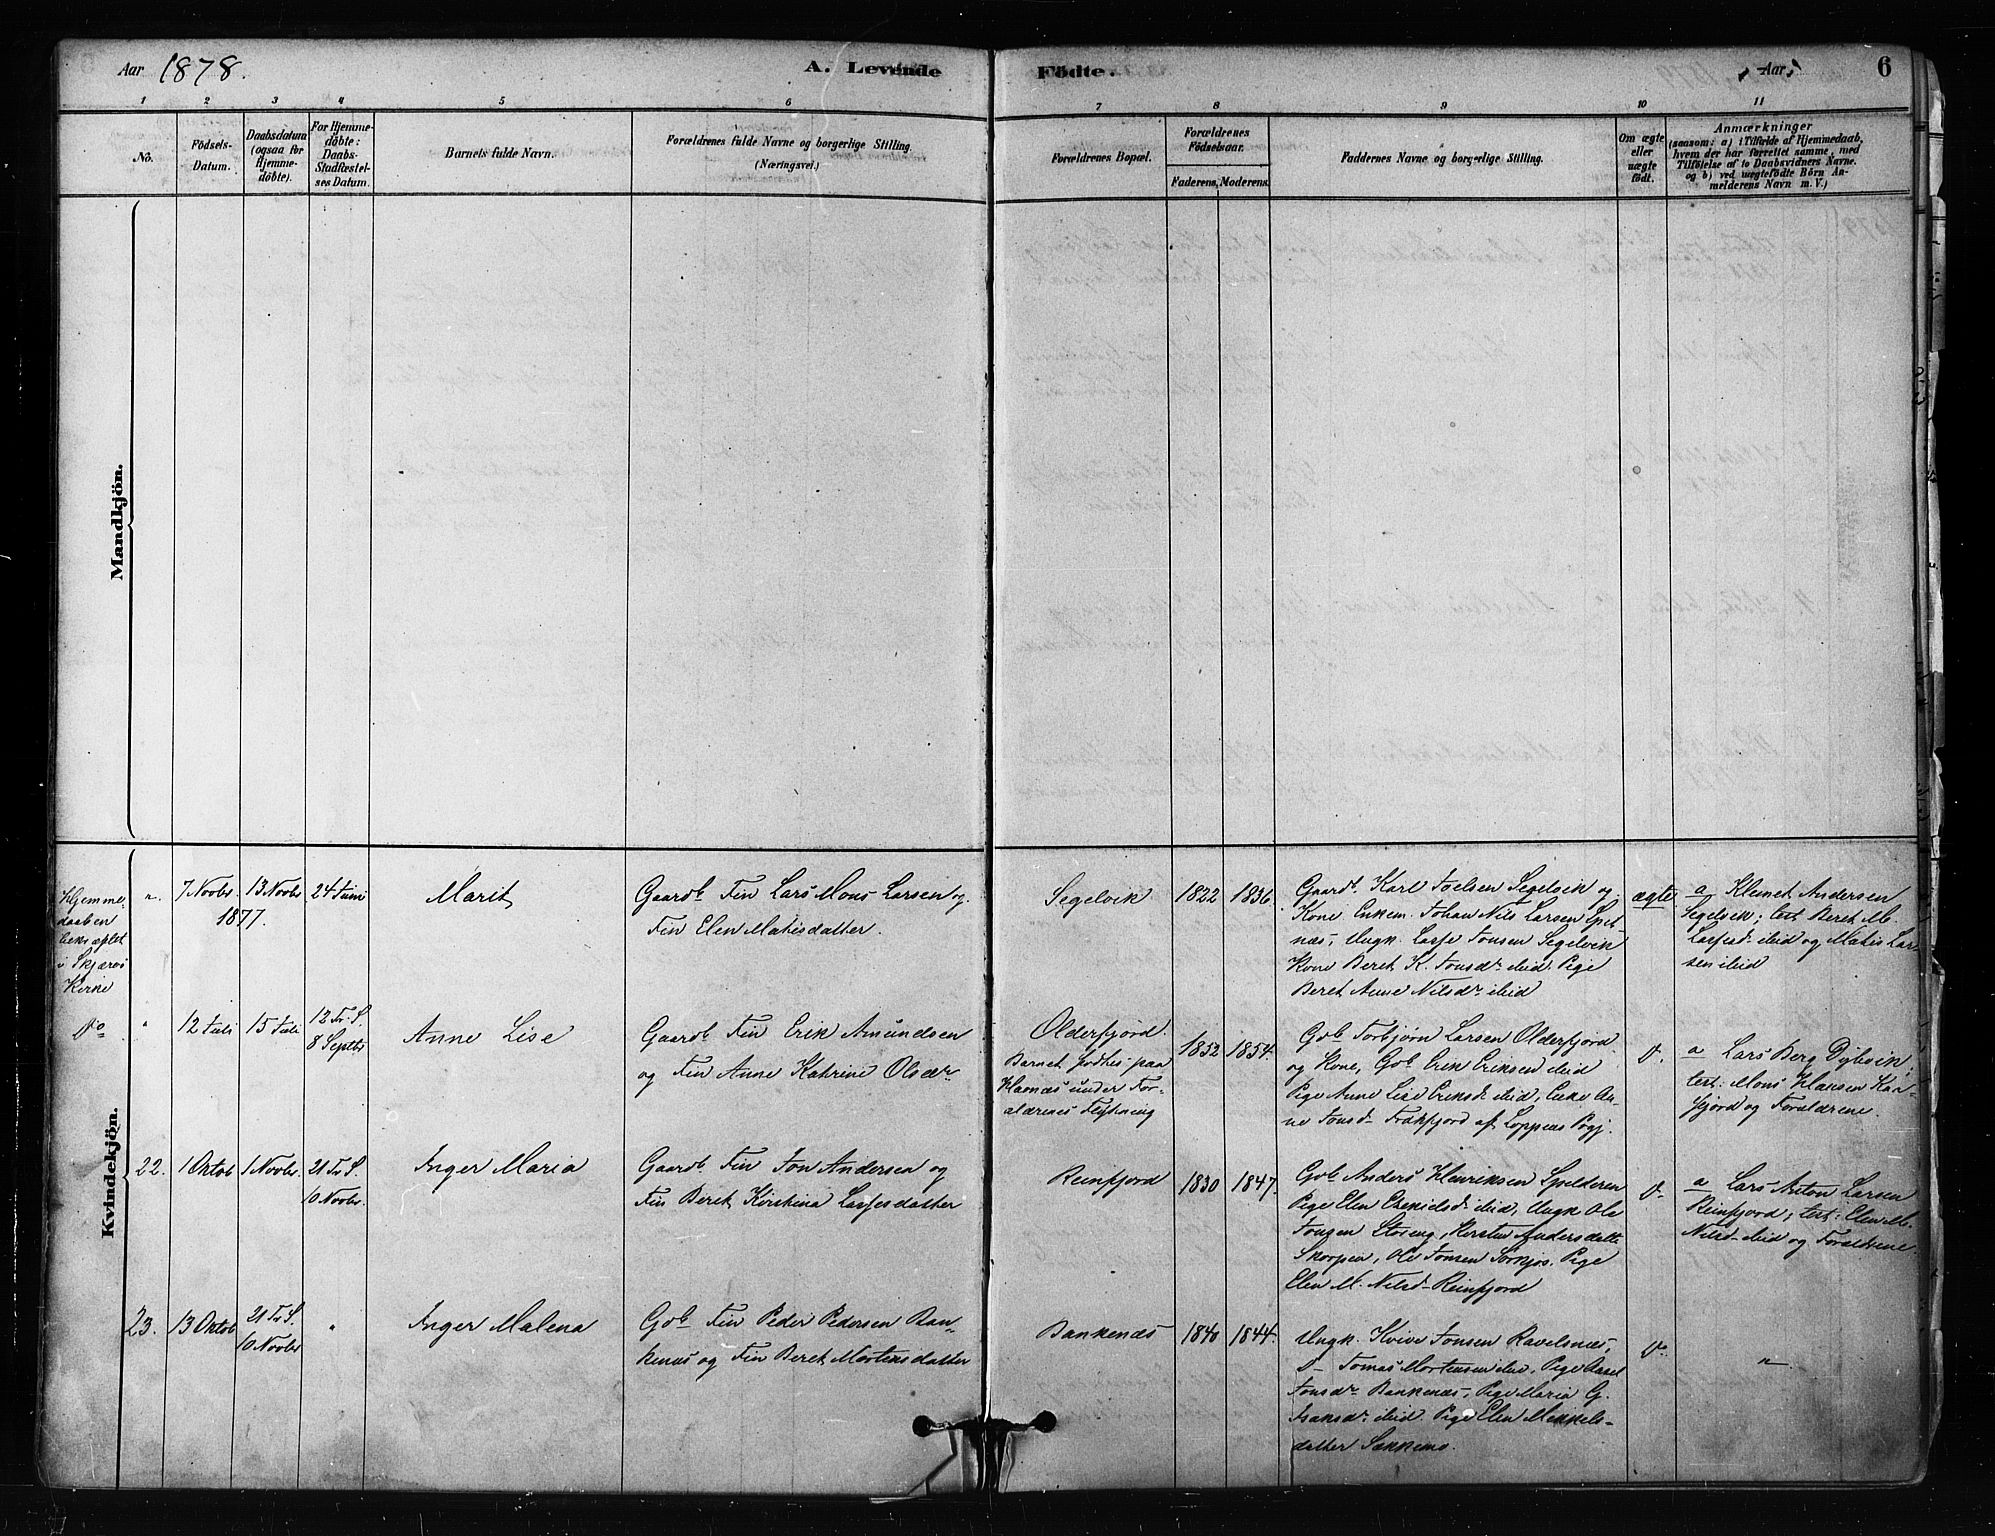 Aar 1878.
A. Levende
Födte.
Aar
6
1 2 3 4 5 6 7 8 9 10 11
No.
Födsels-
Datum.
Daabsdatum
(ogsaa for
Hjemme-
döbte).
For Hjemme-
döbte:
Daabs-
Stadfæstel-
ses Datum.
Barnets fulde Navn.
Forældrenes fulde Navne og borgerlige Stilling.
(Næringsvei.)
Forældrenes Bopæl.
Forældrenes
Födselsaar.
Faderens. Moderens.
Faddernes Navne og borgerlige Stilling.
Om ægte
eller
uægte
födt.
Anmærkninger
(saasom: a) i Tilfælde af Hjemmedaab,
hvem der har forrettet samme, med
Tilföielse af to Daabsvidners Navne.
og b) ved uægtefödte Börn An-
melderens Navn m. V.)
Mandkjön.
Kvindekjön.
Hjemme-
daaben
i Skjærvø
Kirke
7 Novbr.
1877.
13 Novbr
24 Juni
Marit
Gaardb. Fin Lars Mons Larsen og
Fin Elen Mathisdatter.
Segelvik
1822
1836
Gaardb. Karl Joelsen Segelvik og
Kone, Enkem. Johan Nils Larsen Spil-
næs, Ungk. Lasse Jonsen Segelvik
Kone Beret K. Jonsdr ibid. Pige
Beret Anne Nilsdr ibid
ægte
a Klemet Andersen
Segelvik; test Beret M.
Larsesd. ibid og Mathis Lar-
sen ibid
Do
"
12 Juli
15 Juli
12 Tr. S.
8 Septbr
Anne Lise
Gaardb Fin Erik Amundsen
og Fin Anne Kathrine Olsdr
Olderfjord.
Barnet fødtes paa
Havnæs under For-
ældrenes Flytning
1852
1854.
Gob Torbjørn Larsen Olderfjord
og Kone, Gob Erik Eriksen ibid
Pige Anne Lise Eriksd. ibid, Enke An-
ne Jonsd. Frakfjord af Loppens Pgj.
Do
a Lars Berg Dybvik;
test. Mons Hansen Kan-
fjord og Forældrene.
22.
1 Oktob
1 Novbr.
21 Tr S.
10 Novbr.
Inger Maria
Gaardb. Fin Jon Andersen og
Fin Beret Kirstina Lassesdatter
Reinfjord
1830
1847.
Gob Anders Henriksen Spilderen
Pige Elen Esekielsd. ibid, Ungk Ole
Jonsen Storeng, Kirsten Andersdatt.
Skorpen, Ole Jonsen Sørkjos. Pige
Elen M. Nilsd. Reinfjord
Do
a Lars Anton Larsen
Reinfjord; test: Elen M.
Nilsd. ibid og Forældrene.
23.
13 Oktob
21 Tr S.
10 Novbr
"
Inger Malena
Gob Fin Peder Pedersen Ban-
kenæs og Fin Beret Mortensdatter
Bankenæs
1840
1844.
Ungk. Hvive Jonsen Ravelsnæs,
Do Tomas Mortensen ibid, Pige
Jonsdr Bankenæs, Pige Maria G.
Isaksdr ibid. Pige Elen Mikkels-
datter
Do
"